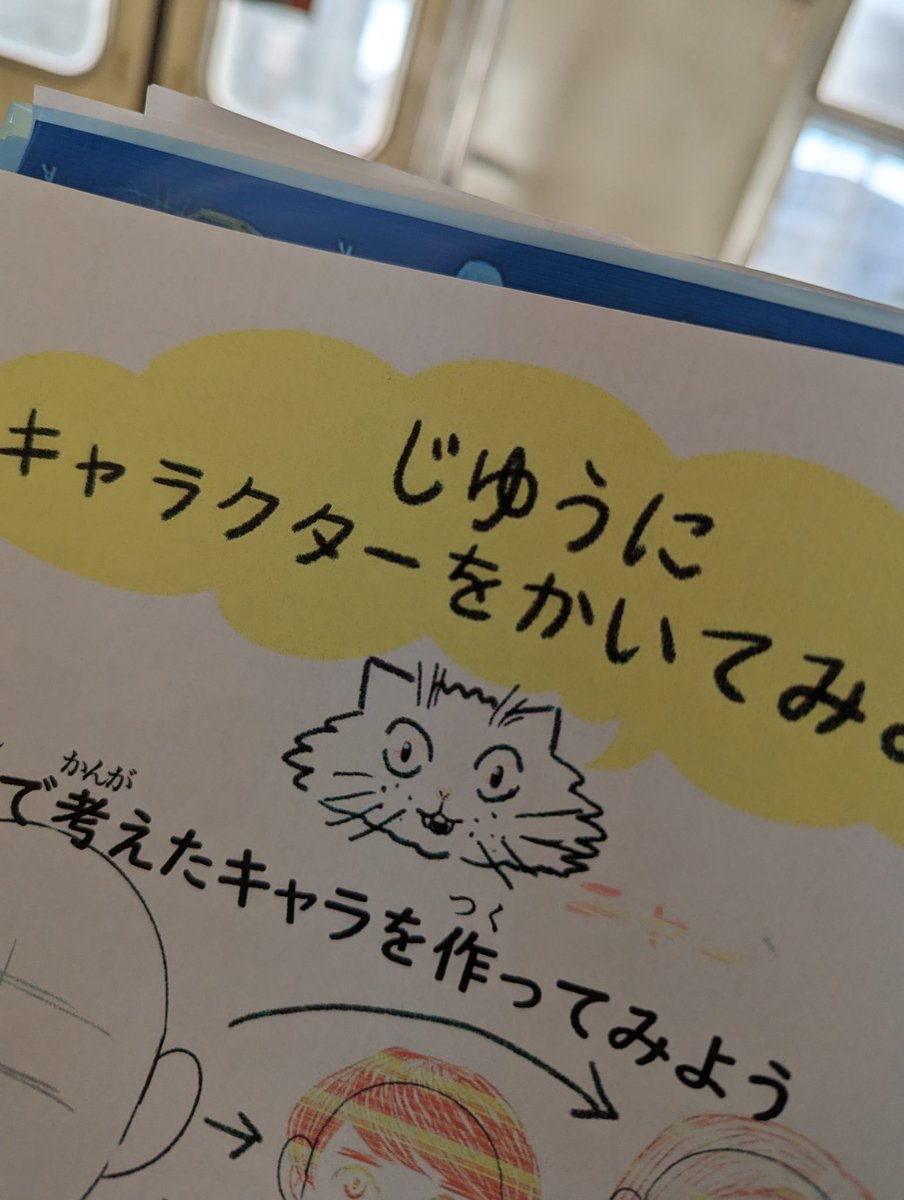 じゆうに
キャラクターをかいてみ
かんが
で考えたキャラを作ってみよう
つく
ニャーン